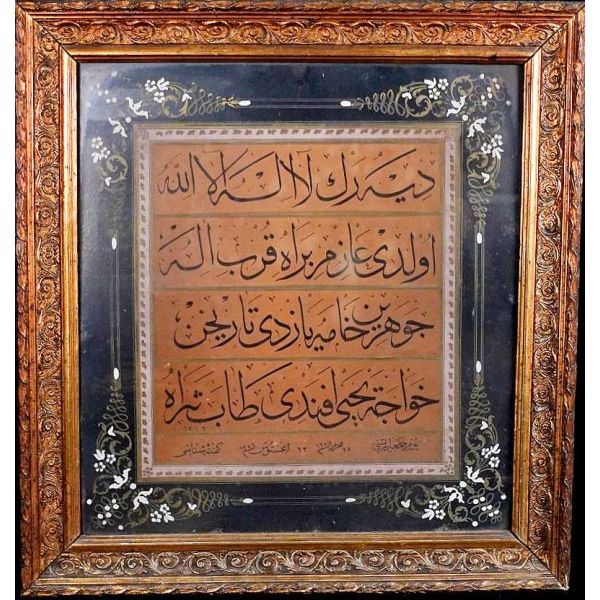 دیه رك لا اله الا الله
اولدی عازم براه قرب اله
جوهرین خامه یازدی تاریخن
خواجه یحیی افندی طاب ثراه
٢٣ اغستوس